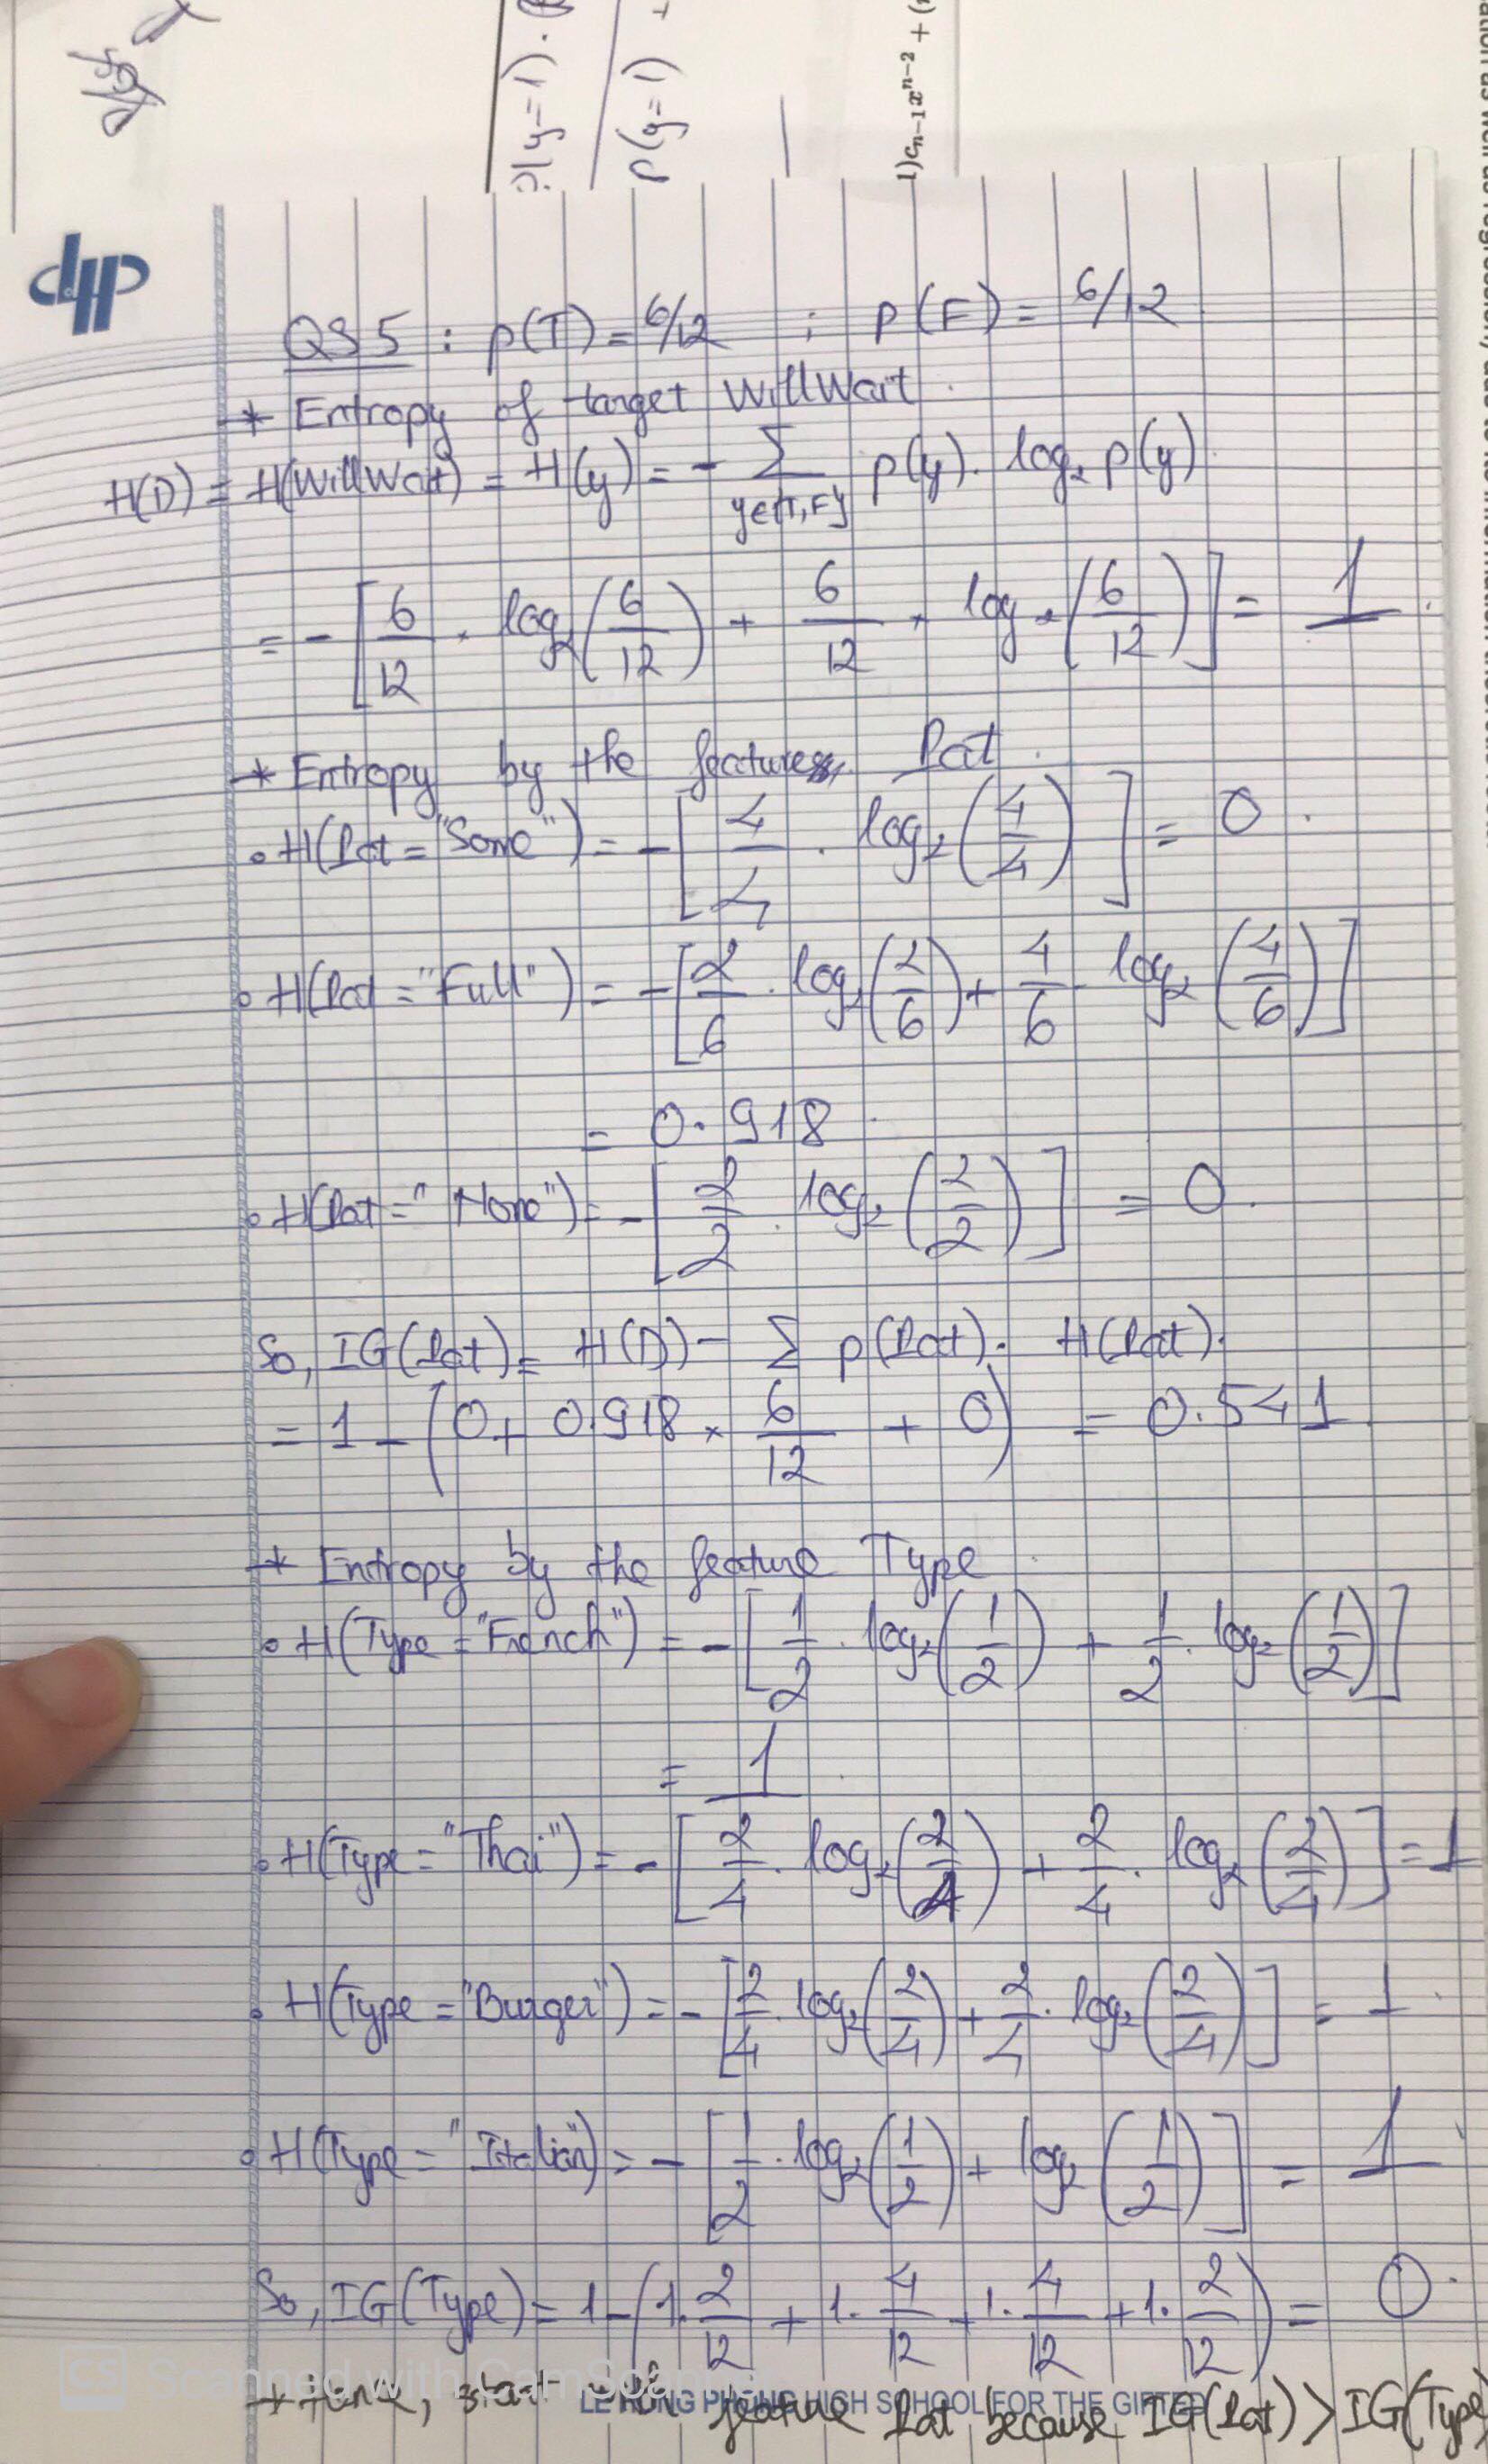 P(y=1)
1)cₙ₋₁xⁿ⁻² + (
dHP
QS5 : p(T) = 6/12 ; p(F) = 6/12
* Entropy of target WillWait.
H(D) = H(WillWait) = H(y) = - Σ_{y∈{T,F}} p(y). log₂ p(y)
= - [6/12 . log₂(6/12) + 6/12 . log₂(6/12)] = 1.
* Entropy by the features Pat.
• H(Pat = "Some") = - [4/4 . log₂(4/4)] = 0.
• H(Pat = "Full") = - [2/6 . log₂(2/6) + 4/6 . log₂(4/6)]
= 0.918.
• H(Pat = "None") = - [2/2 . log₂(2/2)] = 0.
So, IG(Pat) = H(D) - Σ p(Pat). H(Pat).
= 1 - (0 + 0.918 × 6/12 + 0) = 0.541.
* Entropy by the feature Type.
• H(Type = "French") = - [1/2 . log₂(1/2) + 1/2 . log₂(1/2)]
= 1.
• H(Type = "Thai") = - [2/4 . log₂(2/4) + 2/4 . log₂(2/4)] = 1
• H(Type = "Burger") = - [2/4 . log₂(2/4) + 2/4 . log₂(2/4)] = 1.
• H(Type = "Italian") = - [1/2 . log₂(1/2) + log₂(1/2)] = 1.
So, IG(Type) = 1 - (1. 2/12 + 1. 4/12 + 1. 4/12 + 1. 2/12) = 0.
CS Scanned with CamScanner
LE HONG PHONG HIGH SCHOOL FOR THE GIFTED
start with feature Pat because IG(Pat) > IG(Type)